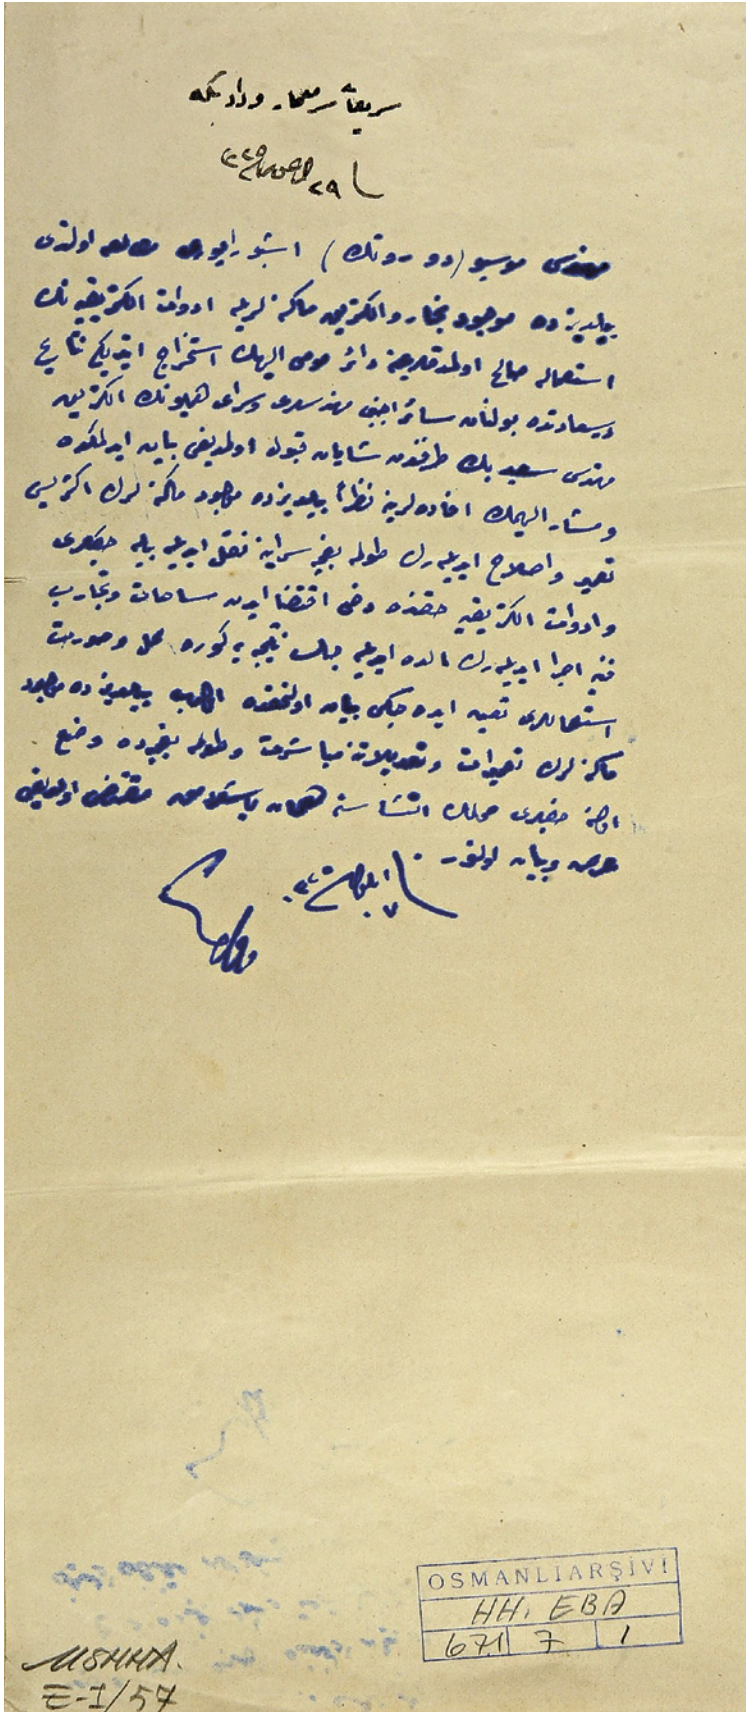 سریعاً سرمعمار وداد بكه
٢٩
مهندسی موسیو (دو رونك) اشبو راپوری مطالعه اولندی
ییلدیزده موجود بخار والكتریق ماكنه لریله ادوات الكتریقیه نك
استعماله صالح اولدقلرینه دائر مومی الیهك استخراج ایتدیكی نتایج
درسعادتده بولنان سائر اجنبی مهندسلری وسرای همایونك الكتریق
مهندسی سعید بك طرفندن شایان قبول اولدیغی بیان ایدلمكده
ومشار الیهمك افاده لرینه نظراً ییلدیزده موجود ماكنه لرك اكثریسی
تعمیر واصلاح ایدیله رك طولمه بغچه سراینه نقل ایدیله بیله جكلری
وادوات الكتریقیه حقنده دخی اقتضا ایدن مساحات وتجارب
فنیه اجرا ایدیله رك الده ایدیله جك نتیجه یه كوره محل وصورت
استعماللری تعیین ایده جكی بیان اولنمقده اولوب ییلدیزده موجود
ماكنه لرك تعمیرات وتعدیلاتنه مباشرت وطولمه بغچه ده وضع
اولنه جقلری محلك انشاسنه همان باشلامق مقتضی اولدیغی
عرض وبیان اولنور
٧ ایلول ٣٢٥
وداد
OSMANLI ARŞİVİ
HH. EBA
671 7 1
MSHHA.
E-I/57